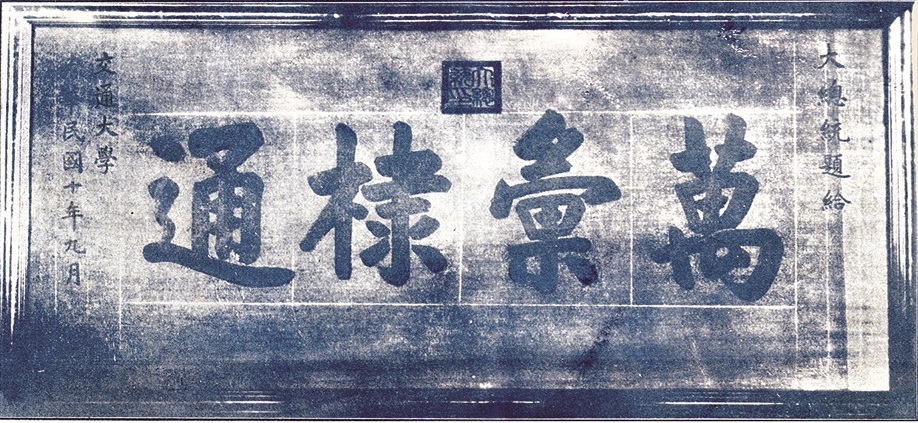 大總統題給
萬彙棣通
交通大學
中華民國十年九月